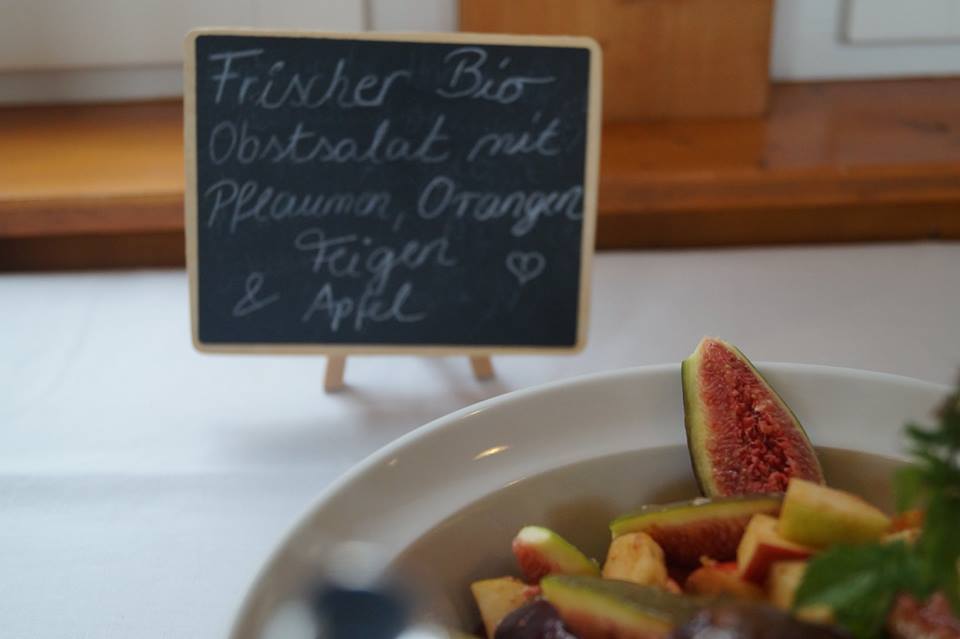 Frischer Bio
Obstsalat mit
Pflaumen, Orangen
Feigen
& Apfel